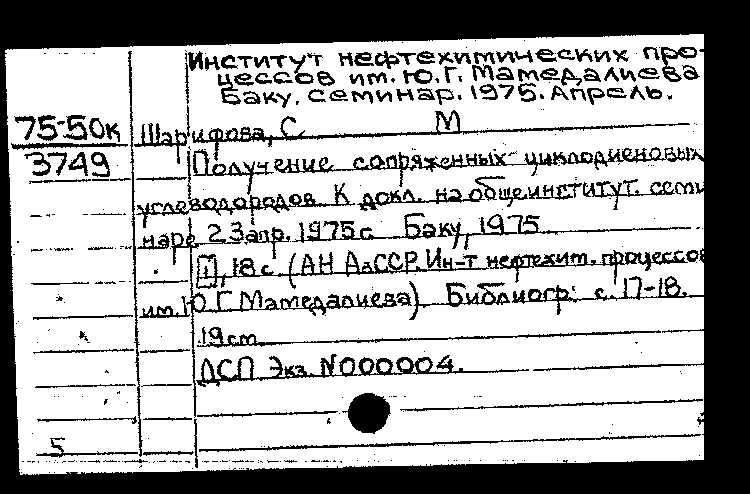 Институт нефтехимических про-
цессов им. Ю.Г. Мамедалиева
Баку. семинар. 1975. Апрель.
75-50к
3749
Шарифова, С М
Получение сопряженных циклодиеновых
углеводородов. К докл. на общеинститут. семи
наре 23 апр. 1975 г. Баку, 1975.
[1], 18 с. (АН АзССР. Ин-т нефтехим. процессов
им. Ю.Г. Мамедалиева). Библиогр: с. 17-18.
19 см.
ДСП Экз. N000004.
5